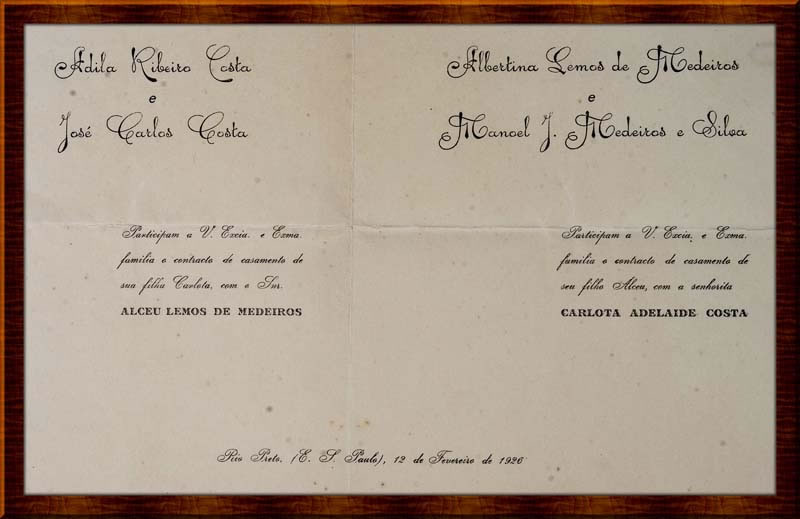 Adila Ribeiro Costa
e
José Carlos Costa
Participam a V. Excia. e Exma.
familia o contracto de casamento de
sua filha Carlota, com o Snr.
ALCEU LEMOS DE MEDEIROS
Albertina Lemos de Medeiros
e
Manoel J. Medeiros e Silva
Participam a V. Excia. e Exma.
familia o contracto de casamento de
seu filho Alceu, com a senhorita
CARLOTA ADELAIDE COSTA
Rio Preto, (E. S. Paulo), 12 de Fevereiro de 1926